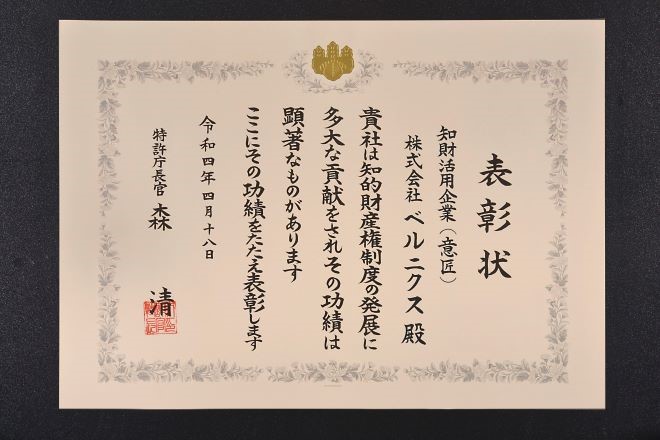 表彰状
知財活用企業（意匠）
株式会社 ベルニクス 殿
貴社は知的財産権制度の発展に
多大な貢献をされその功績は
顕著なものがあります
ここにその功績をたたえ表彰します
令和四年四月十八日
特許庁長官 森 清